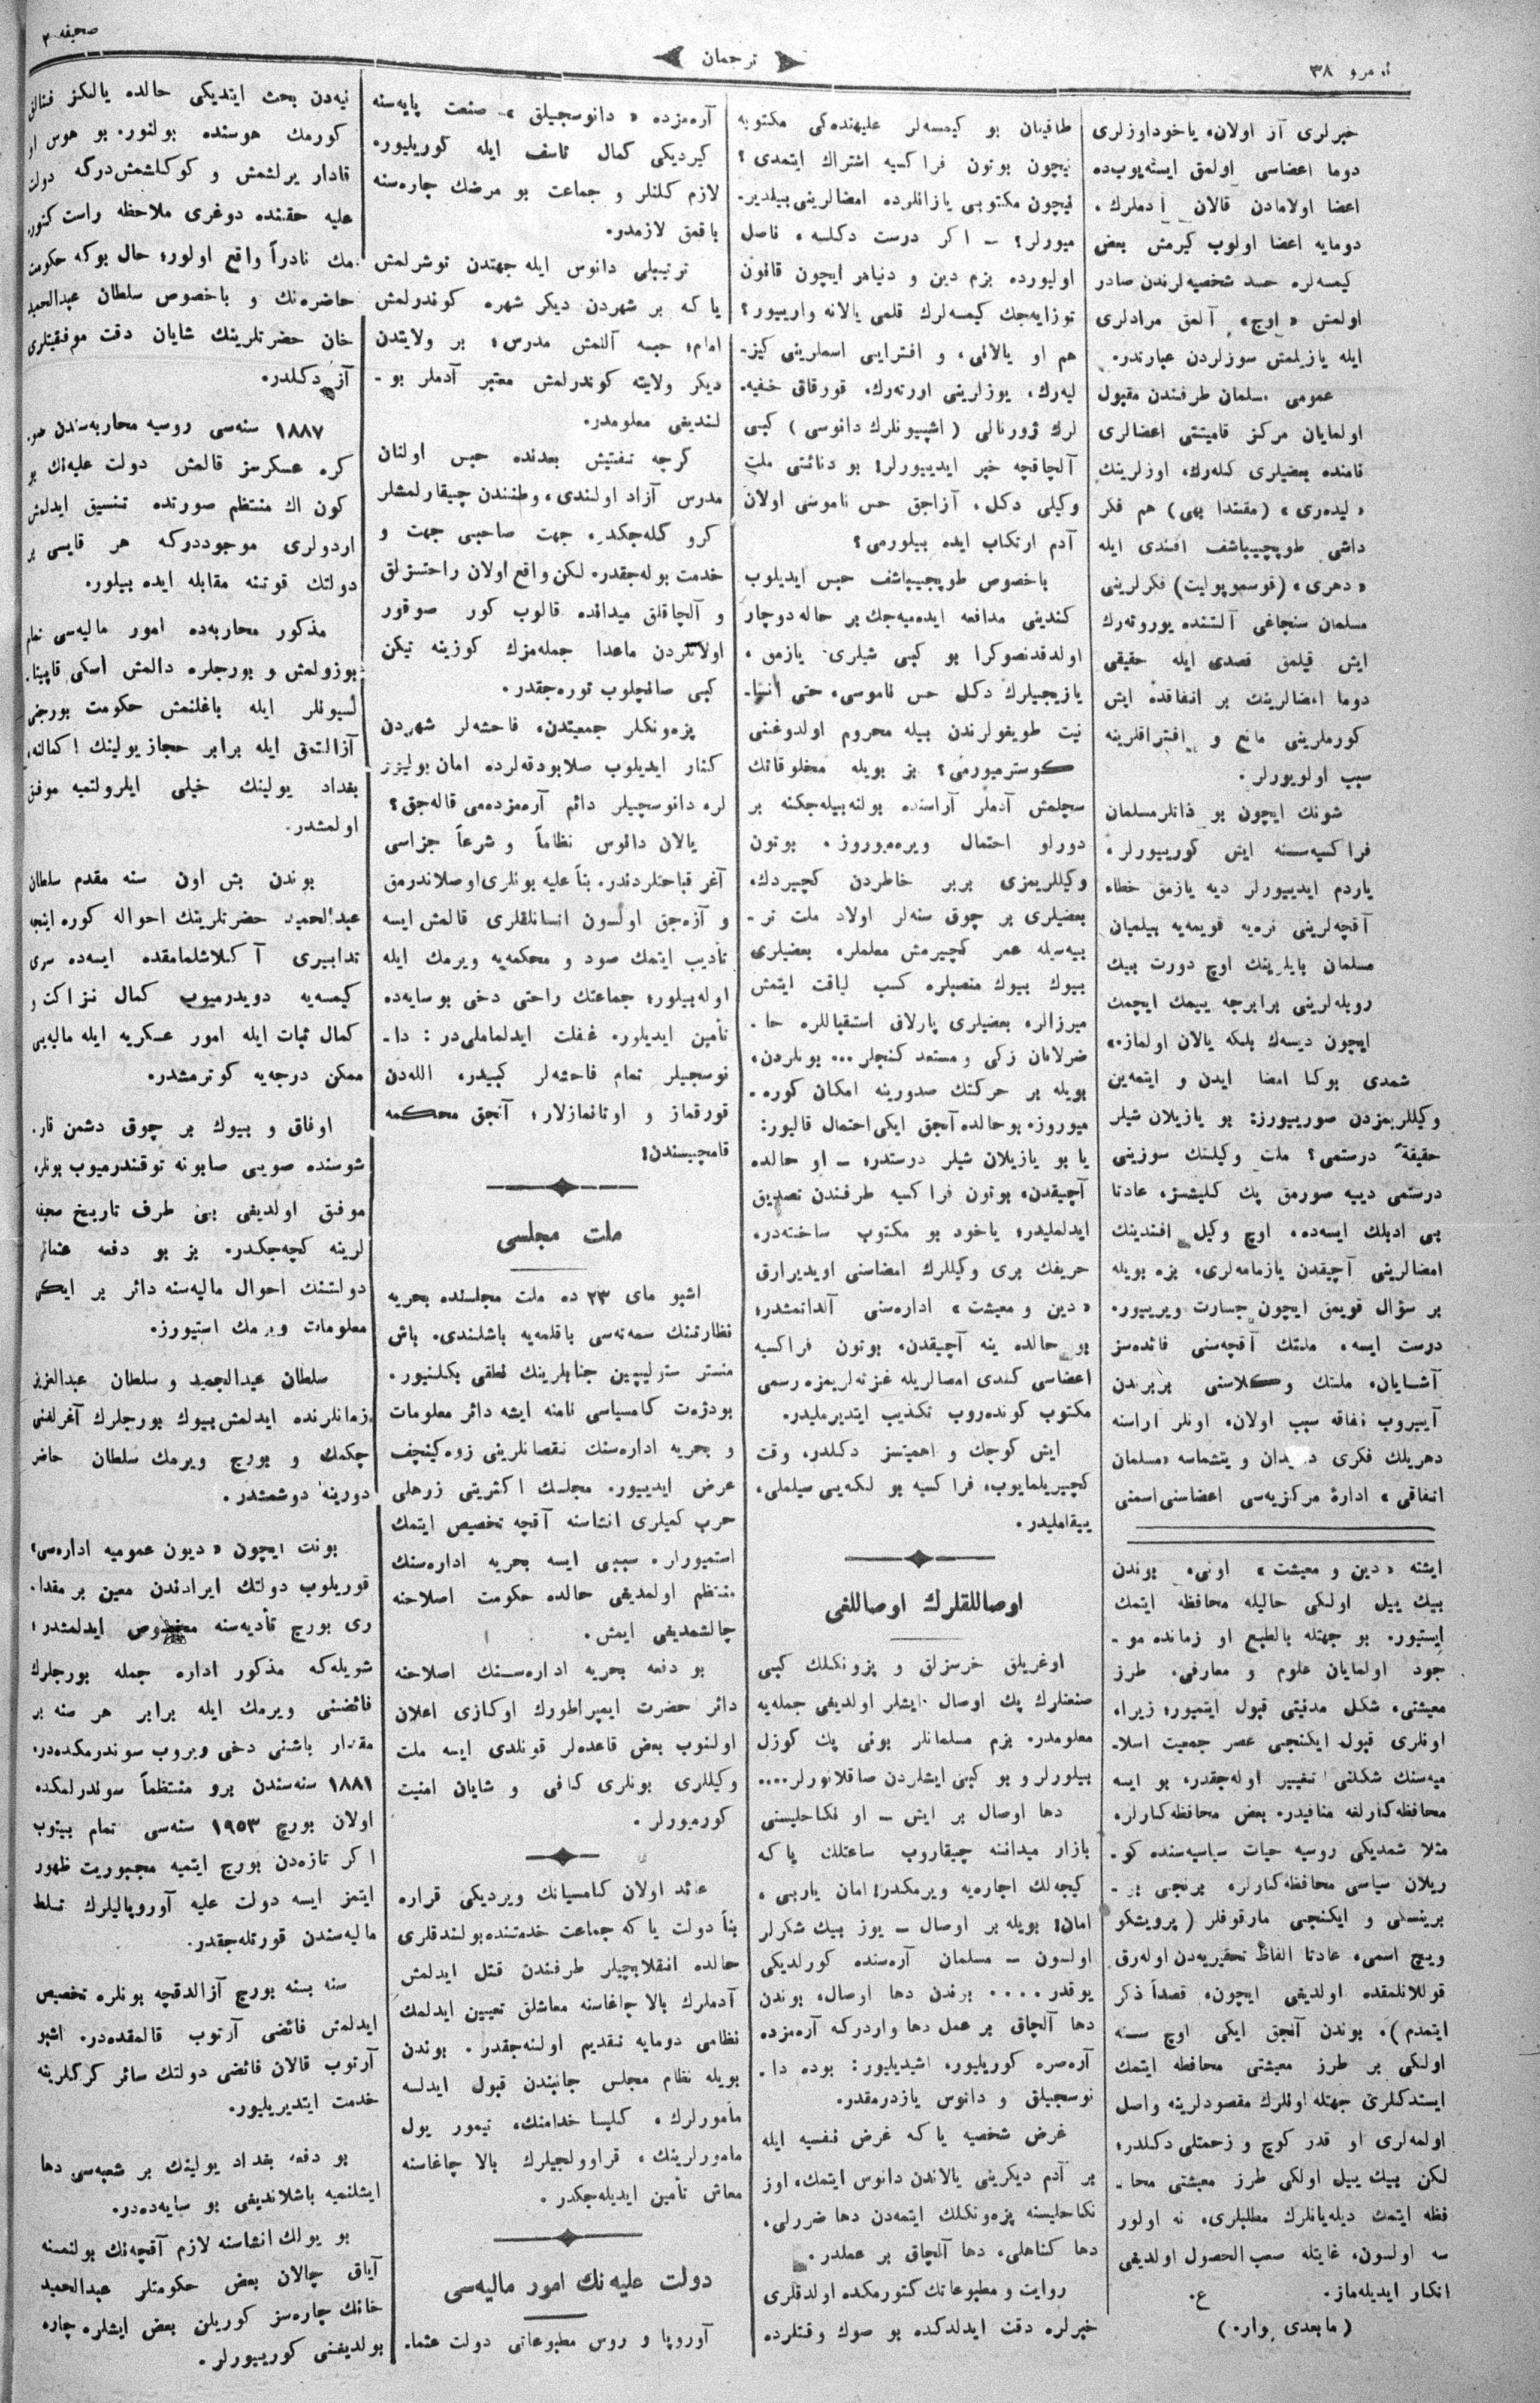 نومرو ٣٨
ترجمان
صحیفه ٢
خبرلری آز اولان، یاخود اوزلری
دوما اعضاسی اولمق ایسته‌یوب‌ده
اعضا اولامادن قالان آدملرك،
دومایه اعضا اولوب كیرمش بعض
كیمسه‌لره حسد شخصیه‌لرندن صادر
اولمش «اوج» آلمق مرادلری
ایله یازیلمش سوزلردن عبارتدر.
عمومی مسلمان طرفندن مقبول
اولمایان مركز قامیتتی اعضالری
نامنده بعضیلری كله‌رك، اوزلرینك
«لیده‌ری» (مقتدا بهی) هم فكر
داشی طوپچیباشف افندی ایله
«دهری» (قوسموپولیت) فكرلرینی
مسلمان سنجاغی آلتنده یوروته‌رك
ایش قیلمق قصدی ایله حقیقی
دوما اعضالرینك بر اتفاقده ایش
كورملرینی مانع و افتراقلرینه
سبب اولویورلر.
شونك ایچون بو ذاتلر مسلمان
فراكسیه‌سنه ایش كورییورلر،
یاردم ایدییورلر دیه یازمق خطاء
آقچه‌لرینی نره‌یه قویمه‌یه بیلمیان
مسلمان بایلرینك اوچ دورت بیك
روبله‌لرینی برابرجه ییمك ایچمك
ایچون دیسه‌ك بلكه یالان اولماز.»
شمدی بوكا امضا ایدن و ایتمه‌ین
وكیللریمزدن صورییورز: بو یازیلان شیلر
حقیقةً درستمی؟ ملت وكیلینك سوزینی
درستمی دییه صورمق پك كلیشسز، عادتا
بی ادبلك ایسه‌ده، اوچ وكیل افندینك
امضالرینی آچیقدن یازمامه‌لری، بزه بویله
بر سؤال قویمق ایچون جسارت ویرییور.
درست ایسه، ملتك آقچه‌سنی فائده‌سز
آشایان، ملتك وكلاسنی بربرندن
آییروب نفاقه سبب اولان، اونلر اراسنه
دهریلك فكری
اتفاقی» ادارۀ مركزیه‌سی اعضاسنی اسمنی
ایشته «دین و معیشت» اونی، بوندن
بیك ییل اولكی حالیله محافظه ایتمك
ایستیور. بو جهتله بالطبع او زمانده مو-
جود اولمایان علوم و معارفی، طرز
معیشتی، شكل مدنیتی قبول ایتمیور؛ زیرا،
اونلری قبول ایكنجی عصر جمعیت اسلا-
میه‌سنك شكلنی تغییر اوله‌جقدر، بو ایسه
محافظه‌كارلغه منافیدر. بعض محافظه‌كارلر،
مثلا شمدیكی روسیه حیات سیاسیه‌سنده كو-
ریلان سیاسی محافظه‌كارلر، برنجی پر-
برینسلی و ایكنجی مارقوفلر (پرویشكو
ویچ اسمی، عادتا الفاظ تحقیریه‌دن اوله‌رق
قوللانلمقده اولدیغی ایچون، قصداً ذكر
ایتمدم). بوندن آنجق ایكی اوچ سنه
اولكی بر طرز معیشتی محافظه ایتمك
ایستدكلری جهتله اونلرك مقصودلرینه واصل
اولمه‌لری او قدر كوچ و زحمتلی دكلدر؛
لكن بیك ییل اولكی طرز معیشتی محا-
فظه ایتمك دیله‌یانلرك مطلبلری، نه اولور
سه اولسون، غایتله صعب الحصول اولدیغی
انكار ایدیله‌ماز. ع.
(مابعدی وار.)
طاقینان بو كیمسه‌لر علیهنده‌كی مكتوبه
نیچون بوتون فراكسیه اشتراك ایتمدی؟
نیچون مكتوبی یازانلرده امضالرینی بیلدیر-
میورلر؟ ــ اكر درست دكلسه، فاصل
اولیورده بزم دین و دنیامز ایچون قانون
توزایه‌جك كیمسه‌لرك قلمی یالانه وارییور؟
هم او یالانی، و افترایی اسملرینی كیز-
لیه‌رك، یوزلرینی اورته‌رك، قورقاق خفیه-
لرك ژورنالی (اشپیونلرك دانوسی) كبی
آلچاقچه خبر ایدییورلر! بو دنائتی ملت
وكیلی دكل، آزاجق حس ناموسی اولان
آدم ارتكاب ایده بیلورمی؟
باخصوص طوپچیباشف حبس ایدیلوب
كندینی مدافعه ایده‌میه‌جك بر حاله دوچار
اولدقدنصوكرا بو كبی شیلری یازمق،
یازیجیلرك دكل حس ناموسی، حتی انسا-
نیت طویغولرندن بیله محروم اولدوغنی
كوسترمیورمی؟ بز بویله مخلوقاتك
سچلمش آدملر آراسنده بولنه‌بیله‌جكنه بر
دورلو احتمال ویره‌میوروز. بوتون
وكیللریمزی بربر خاطردن كچیردك،
بعضیلری بر چوق سنه‌لر اولاد ملت تر-
بیه‌سیله عمر كچیرمش معلملر، بعضیلری
بیوك بیوك منصبلره كسب لیاقت ایتمش
میرزالر، بعضیلری پارلاق استقباللره حا-
ضرلانان زكی و مستعد كنجلر... بونلردن،
بویله بر حركتك صدورینه امكان كوره-
میوروز. بو حالده آنجق ایكی احتمال قالیور:
یا بو یازیلان شیلر درستدر؛ ــ او حالده
آچیقدن، بوتون فراكسیه طرفندن تصدیق
ایدلملیدر؛ یاخود بو مكتوب ساخته‌در،
حریفك بری وكیللرك امضاسنی اویدیرارق
«دین و معیشت» اداره‌سنی آلداتمشدر؛
بو حالده ینه آچیقدن، بوتون فراكسیه
اعضاسی كندی امضالریله غزته‌لریمزه رسمی
مكتوب كونده‌روب تكذیب ایتدیرملیدر.
ایش كوچك و اهمیتسز دكلدر، وقت
كچیریلمایوب، فراكسیه بو لكه‌یی سیلملی،
ییقاملیدر.
اوصاللقلرك اوصاللغی
اوغریلق خرسزلق و پزونكلك كبی
صنعتلرك پك اوصال ایشلر اولدیغی جمله‌یه
معلومدر. بزم مسلمانلر بونی پك كوزل
بیلورلر و بو كبی ایشلردن صاقلانورلر....
دها اوصال بر ایش ــ او نكاحلیسنی
بازار میداننه چیقاروب ساعتلك یا كه
كیجه‌لك اجاره‌یه ویرمكدر! امان یاربی،
امان! بویله بر اوصال ــ یوز بیك شكرلر
اولسون ــ مسلمان آره‌سنده كورلدیكی
یوقدر.... بوندن دها اوصال، بوندن
دها آلچاق بر عمل دها واردركه آره‌مزده
آره‌صره كوریلیور، اشیدیلیور: بوده دا-
نوسجیلق و دانوس یازدرمقدر.
غرض شخصیه یا كه غرض نفسیه ایله
بر آدم دیكرینی یالاندن دانوس ایتمك، اوز
نكاحلیسنه پزه‌ونكلك ایتمه‌دن دها ضررلی،
دها كناهلی، دها آلچاق بر عملدر.
روایت و مطبوعاتك كتورمكده اولدقلری
خبرلره دقت ایدلدكده بو صوك وقتلرده
آره‌مزده «دانوسجیلق» صنعت پایه‌سنه
كیردیكی كمال تاسف ایله كوریلیور،
لازم كلنلر و جماعت بو مرضك چاره‌سنه
باقمق لازمدر.
ترتیبلی دانوس ایله جهتدن توشرلمش
یا كه بر شهردن دیكر شهره كوندرلمش
امام؛ حبسه آلنمش مدرس؛ بر ولایتدن
دیكر ولایته كوندرلمش معتبر آدملر بو-
لندیغی معلومدر.
كرچه تفتیش بعدنده حبس اولنان
مدرس آزاد اولندی، وطنندن چیقارلمشلر
كرو كله‌جكدر، جهت صاحبی جهت و
خدمت بوله‌جقدر. لكن واقع اولان راحتسزلق
و آلچاقلق میدانده قالوب كور صوقور
اولانلردن ماعدا جمله‌مزك كوزینه تیكن
كبی صانچلوب توره‌جقدر.
پزه‌ونكلر جمعیتدن، فاحشه‌لر شهردن
كنار ایدیلوب صلابودقه‌لرده امان بولیزز
لره دانوسچیلر دائم آره‌مزده‌می قاله‌جق؟
یالان دانوس نظاماً و شرعاً جزاسی
آغر قباحتلردندر. بناً علیه بونلری اوصلاندرمق
و آزه‌جق اولسون انسانلقلری قالمش ایسه
تأدیب ایتمك صود و محكمه‌یه ویرمك ایله
اوله‌بیلور؛ جماعتك راحتی دخی بو سایه‌ده
تأمین ایدیلور. غفلت ایدلماملی‌در: دا-
نوسجیلر تمام فاحشه‌لر كبیدر، الله‌دن
قورقماز و اوتانمازلار؛ آنجق محكمه
قامچیسندن!
ملت مجلسی
اشبو مای ٢٣ ده ملت مجلسنده بحریه
نظارتنك سمه‌ته‌سی باقلمه‌یه باشلندی. باش
منستر ستولیپین جنابلرینك نطقی بكلنیور.
بودژه‌ت كامسیاسی نامنه ایشه دائر معلومات
و بحریه اداره‌سنك نقصانلرینی زوه‌كینچف
عرض ایدییور. مجلسك اكثریتی زرهلی
حرب كمیلری انشاسنه آقچه تخصیص ایتمك
استمیورلر، سببی ایسه بحریه اداره‌سنك
منتظم اولمدیغی حالده حكومت اصلاحنه
چالشمدیغی ایمش.
بو دفعه بحریه اداره‌سنك اصلاحنه
دائر حضرت ایمپراطورك اوكازی اعلان
اولنوب بعض قاعده‌لر قونلدی ایسه ملت
وكیللری بونلری كافی و شایان امنیت
كورمیورلر.
عائد اولان كامسیانك ویردیكی قراره
بناً دولت یا كه جماعت خدمتنده بولندقلری
حالده انقلابچیلر طرفندن قتل ایدلمش
آدملرك بالا چاغاسنه معاشلق تعیین ایدلمك
نظامی دومایه تقدیم اولنه‌جقدر. بوندن
بویله نظام مجلس جانبندن قبول ایدلسه
مأمورلرك، كلیسا خدامنك، تیمور یول
مامورلرینك، قراوولجیلرك بالا چاغاسنه
معاش تأمین ایدیله‌جكدر.
دولت علیه‌نك امور مالیه‌سی
آوروپا و روس مطبوعاتی دولت عثما-
نیه‌دن بحث ایتدیكی حالده یالكز فنالق
كورمك هوسنده بولنور. بو هوس او
قادار یرلشمش و كوكلشمش‌دركه دولت
علیه حقنده دوغری ملاحظه راست كتور-
مك نادراً واقع اولور؛ حال بوكه حكومت
حاضره‌نك و باخصوص سلطان عبدالحمید
خان حضرتلرینك شایان دقت موفقیتلری
آز دكلدر.
١٨٨٧ سنه‌سی روسیه محاربه‌سندن صو-
كره عسكرسز قالمش دولت علیه‌نك بو
كون اك منتظم صورتده تنسیق ایدلمش
اردولری موجوددركه هر قایسی بر
دولتك قوتنه مقابله ایده بیلور.
مذكور محاربه‌ده امور مالیه‌سی تمام
بوزولمش و بورجلره دالمش اسكی قاپیتا-
لسیونلر ایله باغلنمش حكومت بورجنی
آزالتمق ایله برابر حجاز یولینك اكمالنه،
بغداد یولینك خیلی ایلرولتمیه موفق
اولمشدر.
بوندن بش اون سنه مقدم سلطان
عبدالحمید حضرتلرینك احواله كوره اینجه
تدابیری آكلاشلمامقده ایسه‌ده سری
كیمسه‌یه دویدرمیوب كمال نزاكت و
كمال ثبات ایله امور عسكریه ایله مالیه‌یی
ممكن درجه‌یه كوترمشدر.
اوفاق و بیوك بر چوق دشمن قار-
شوسنده صویی صابونه توقندرمیوب بونلره
موفق اولدیغی بی طرف تاریخ صحیفه
لرینه كچه‌جكدر. بز بو دفعه عثمانلی
دولتنك احوال مالیه‌سنه دائر بر ایكی
معلومات ویرمك استیورز.
سلطان عبدالمجید و سلطان عبدالعزیز
زمانلرنده ایدلمش بیوك بورجلرك آغرلغنی
چكمك و بورج ویرمك سلطان حاضر
دورینه دوشمشدر.
بونك ایچون «دیون عمومیه اداره‌سی»
قوریلوب دولتك ایرادندن معین بر مقدا-
ری بورج تأدیه‌سنه مخصوص ایدلمشدر؛
شویله‌كه مذكور اداره جمله بورجلرك
فائضنی ویرمك ایله برابر هر سنه بر
مقدار باشنی دخی ویروب سوندرمكده‌در.
١٨٨١ سنه‌سندن برو منتظماً سوندرلمكده
اولان بورج ١٩٥٣ سنه‌سی تمام بیتوب
اكر تازه‌دن بورج ایتمیه مجبوریت ظهور
ایتمز ایسه دولت علیه آوروپالیلرك تسلط
مالیه‌سندن قورتله‌جقدر.
سنه بسنه بورج آزالدقچه بونلره تخصیص
ایدلمش فائضی آرتوب قالمقده‌در. اشبو
آرتوب قالان فائضی دولتك سائر كركلرینه
خدمت ایتدیریلیور.
بو دفعه بغداد یولینك بر شعبه‌سی دها
ایشلنمیه باشلاندیغی بو سایه‌ده‌در.
بو یولك انشاسنه لازم آقچه‌نك بولنمسنه
آیاق چالان بعض حكومتلر عبدالحمید
خانك چاره‌سز كوریلن بعض ایشلره چاره
بولدیغنی كورییورلر.